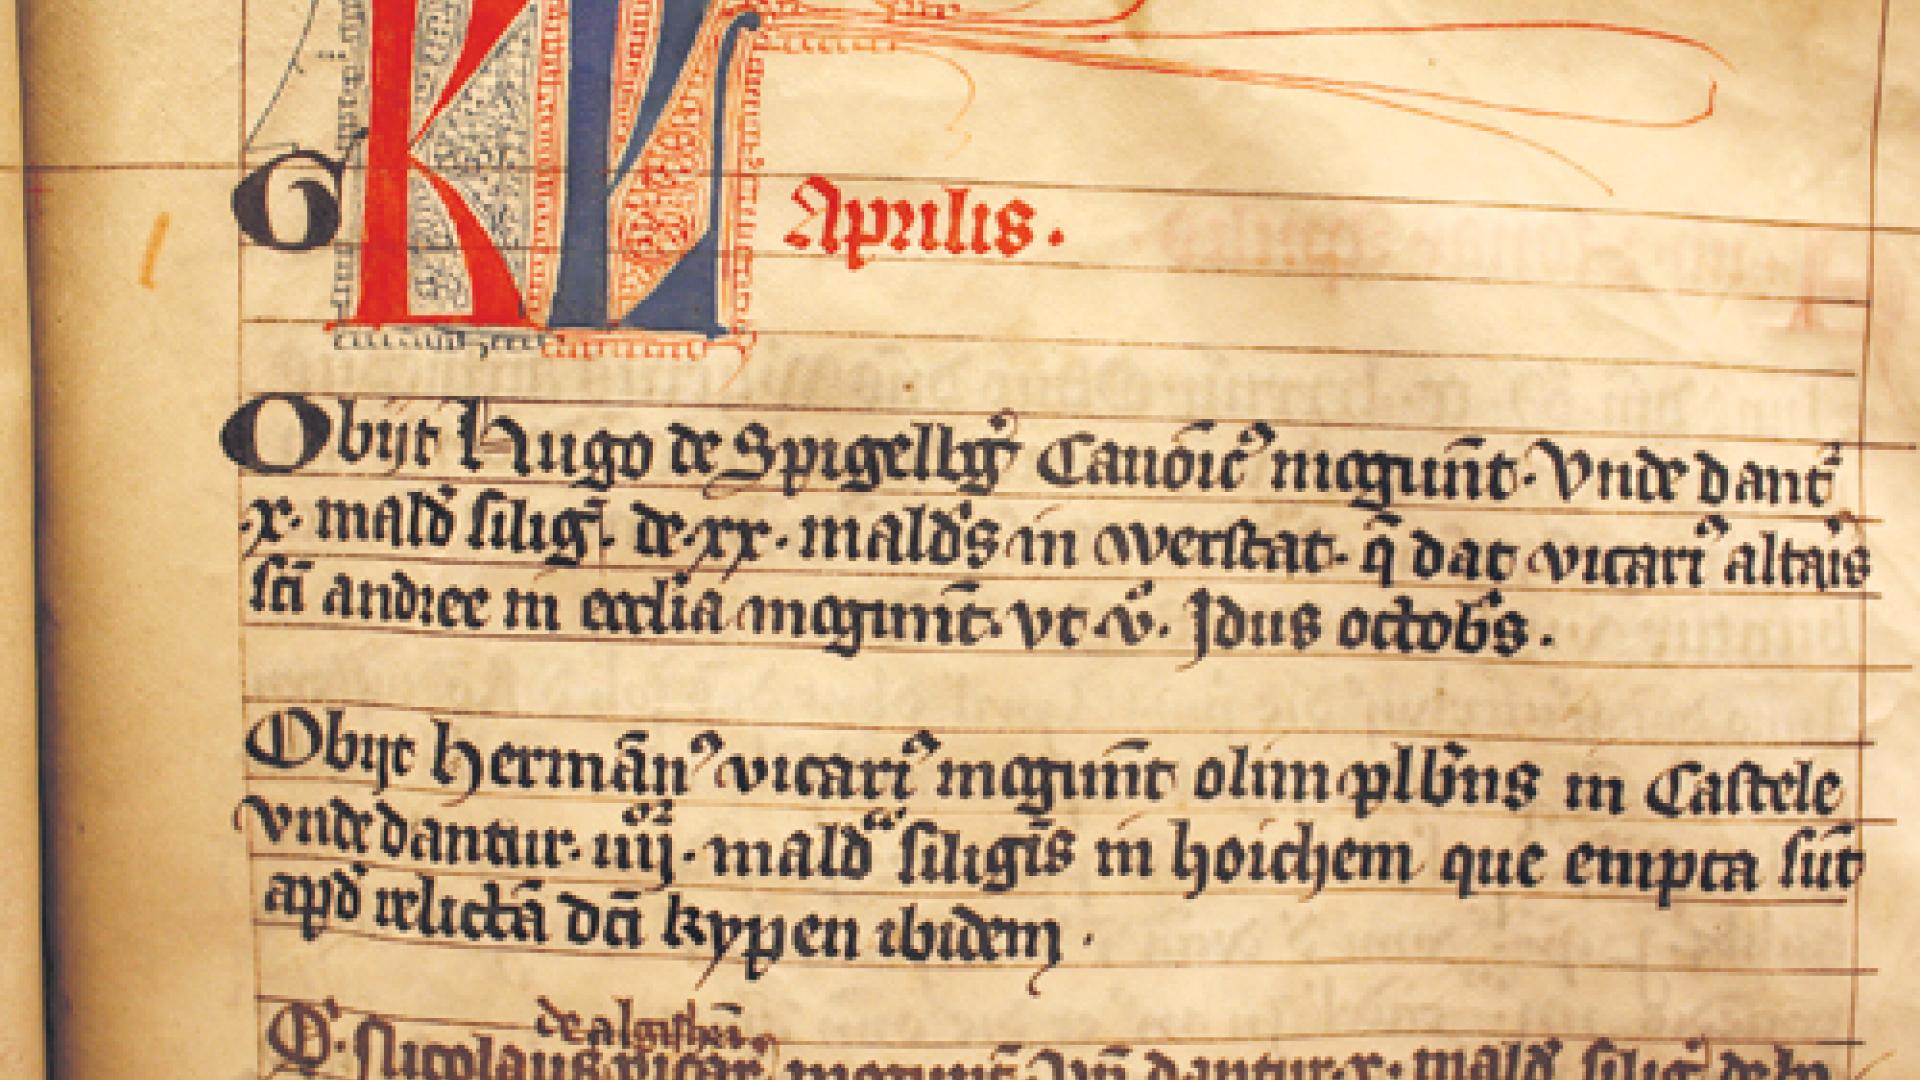 G KL Aprilis.
Obijt Hugo de Spigelbg̉ Canōic̉ mogunt̄. Vnde dant̉
.x. mald̉ silig̉. de .xx. mald̉s in werstat. q̄ dat vicari᷒ altar̉is
sc̄i andree in eccl̄ia mogunt̄. vt .v̉. Jdus octob̉s.
Obijt herman̄᷒ vicari᷒ mogunt̄ olim pleb̄n̉s in Castele
vnde dantur. iiij. mald̉ siligi̅s in hoichem que empta su̅t
apd̉ relicta̅ dc̄i kyppen ibidem.
de algishei̅
O. Nicolaus vicar̉ mogunt̄. Vn̄ dantur .x. mald̉ silig̉